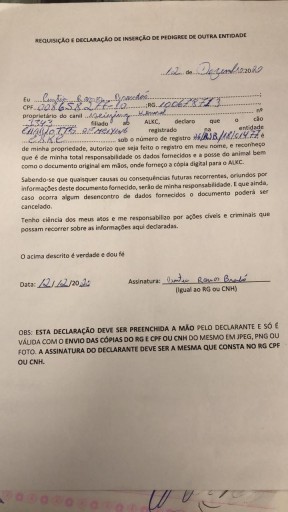 REQUISIÇÃO E DECLARAÇÃO DE INSERÇÃO DE PEDIGREE DE OUTRA ENTIDADE
12 de Dezembro 2020
Eu
CPF. RG.
proprietário do canil nº
3343 filiado ao ALKC, declaro que o cão
registrado na entidade
sob o número de registro
de minha propriedade, autorizo que seja feito o registro em meu nome, e reconheço
que é de minha total responsabilidade os dados fornecidos e a posse do animal bem
como o documento original em mãos, onde forneço a cópia digital para o ALKC.
Sabendo-se que quaisquer causas ou consequências futuras recorrentes, oriundos por
informações deste documento fornecido, serão de minha responsabilidade. E que ainda,
caso ocorra algum desencontro de dados fornecidos o documento poderá ser
cancelado.
Tenho ciência dos meus atos e me responsabilizo por ações cíveis e criminais que
possam recorrer sobre as informações aqui declaradas.
O acima descrito é verdade e dou fé
Data: 12/12/2020 Assinatura:
(igual ao RG ou CNH)
OBS: ESTA DECLARAÇÃO DEVE SER PREENCHIDA A MÃO PELO DECLARANTE E SÓ É
VÁLIDA COM O ENVIO DAS CÓPIAS DO RG E CPF OU CNH DO MESMO EM JPEG, PNG OU
FOTO. A ASSINATURA DO DECLARANTE DEVE SER A MESMA QUE CONSTA NO RG CPF
OU CNH.